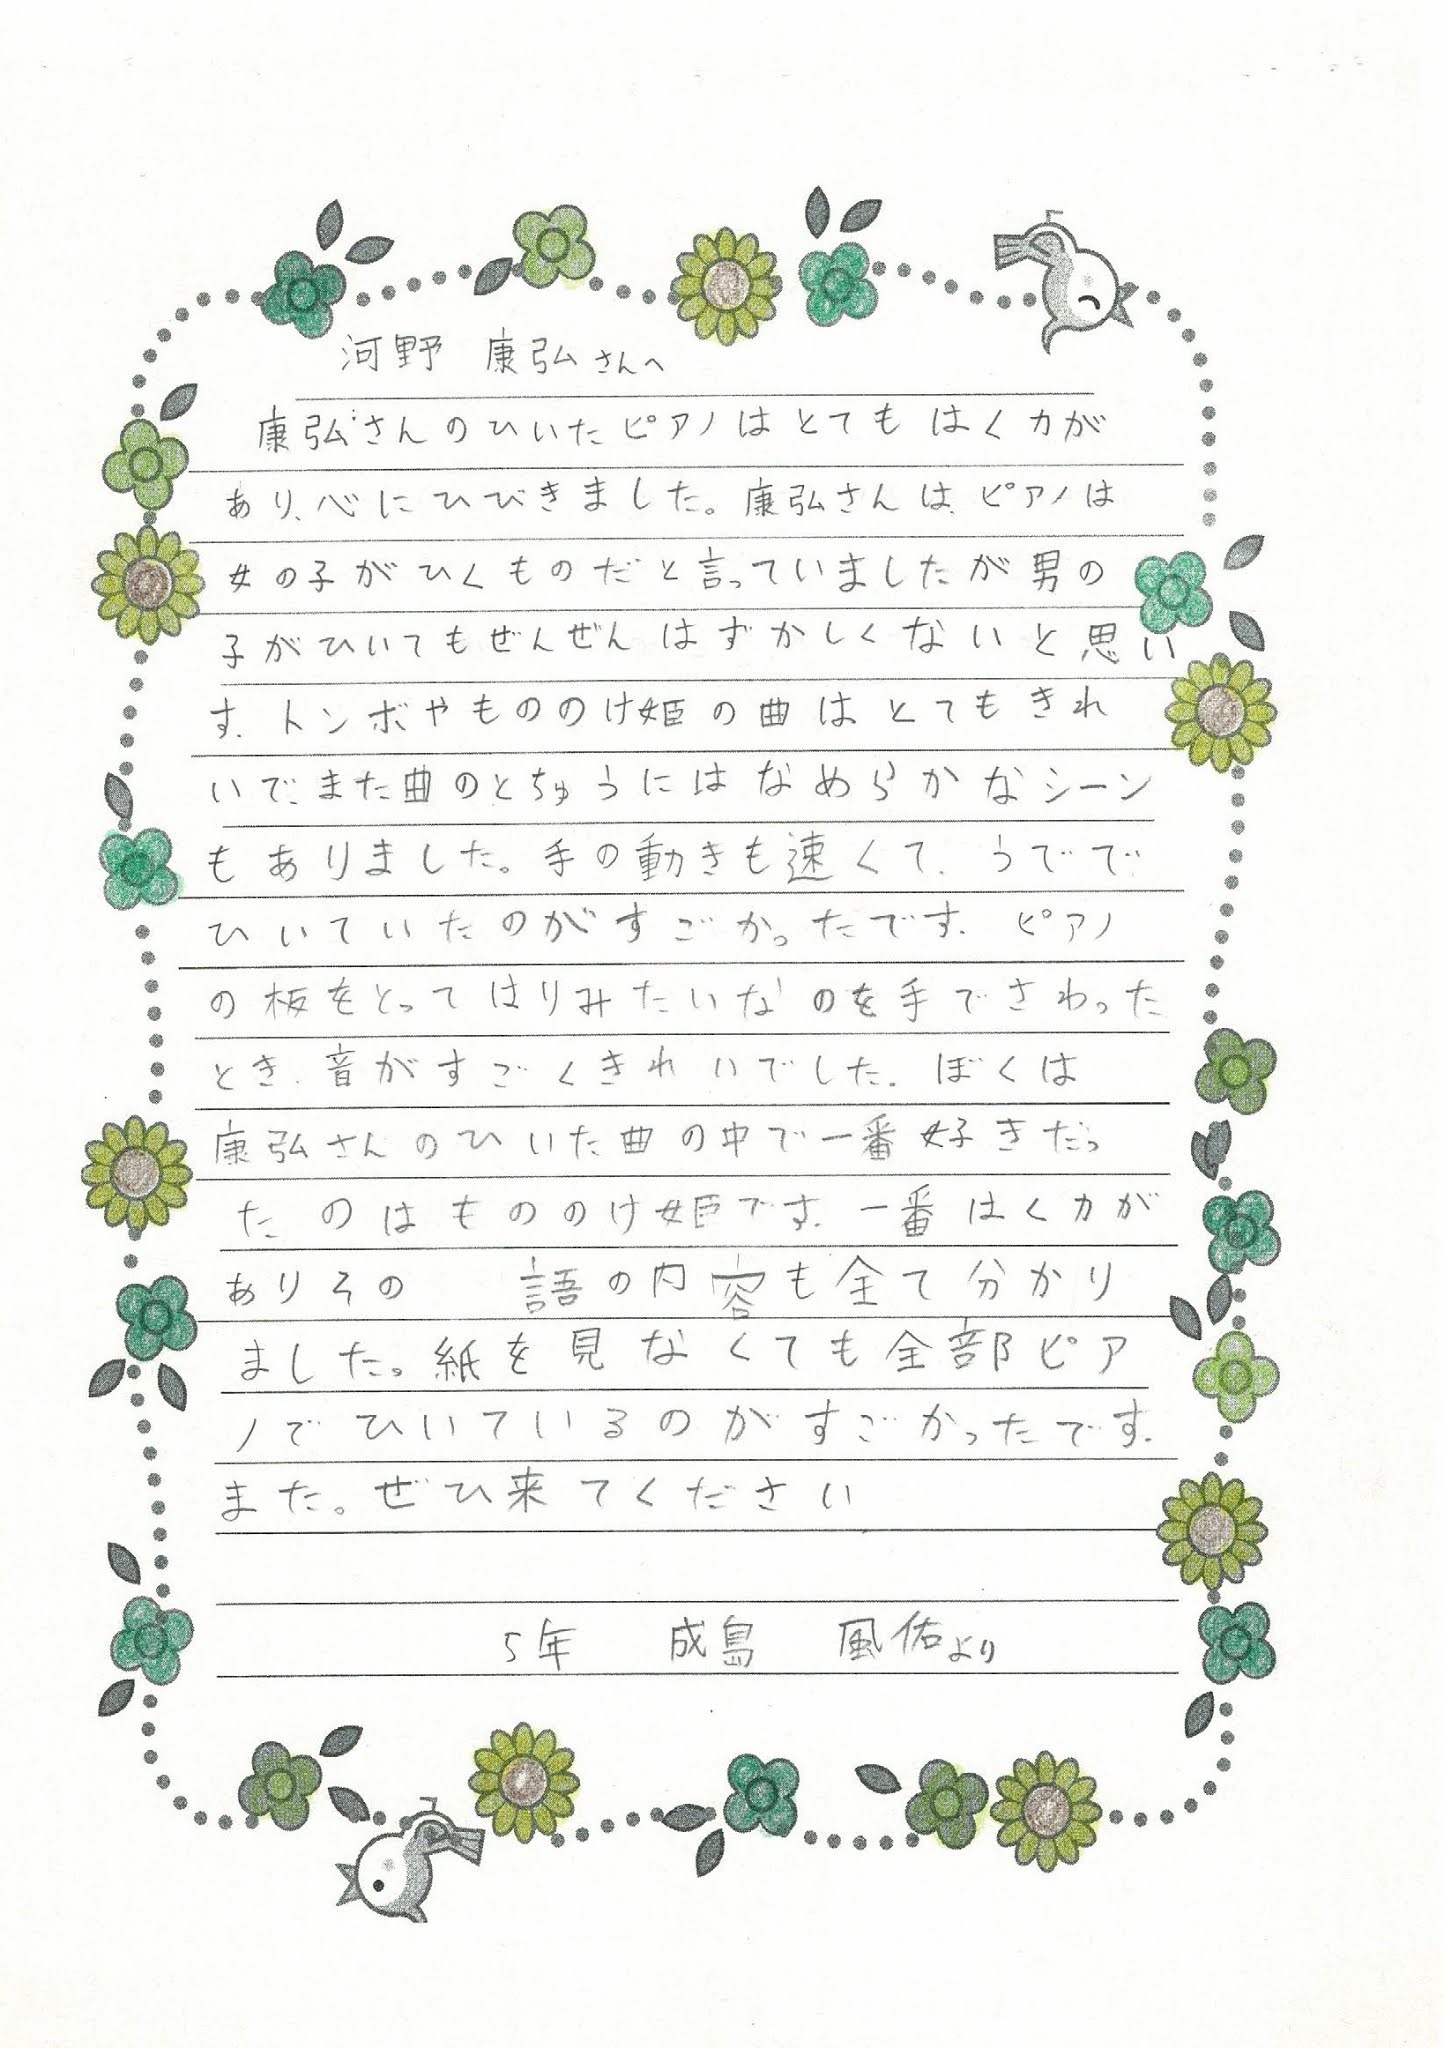 河野 康弘さんへ
康弘さんのひいたピアノはとてもはく力が
あり、心にひびきました。康弘さんは、ピアノは
女の子がひくものだと言っていましたが男の
子がひいてもぜんぜんはずかしくないと思い
す。トンボやもののけ姫の曲はとてもきれ
いで、また曲のとちゅうにはなめらかなシーン
もありました。手の動きも速くて、うでで
ひいていたのがすごかったです。ピアノ
の板をとってはりみたいなのを手でさわった
とき、音がすごくきれいでした。ぼくは
康弘さんのひいた曲の中で一番好きだっ
たのはもののけ姫です。一番はく力が
ありその 語の内容も全て分かり
ました。紙を見なくても全部ピア
ノでひいているのがすごかったです。
また。ぜひ来てください
5年 成島 風佑より